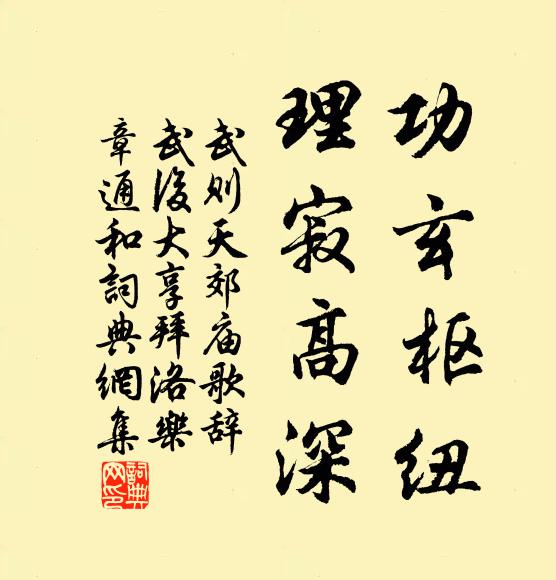 功玄枢纽
理寂高深
武则天郊庙歌辞
武後大享拜洛樂
章通和詞典網集
詞典
网印